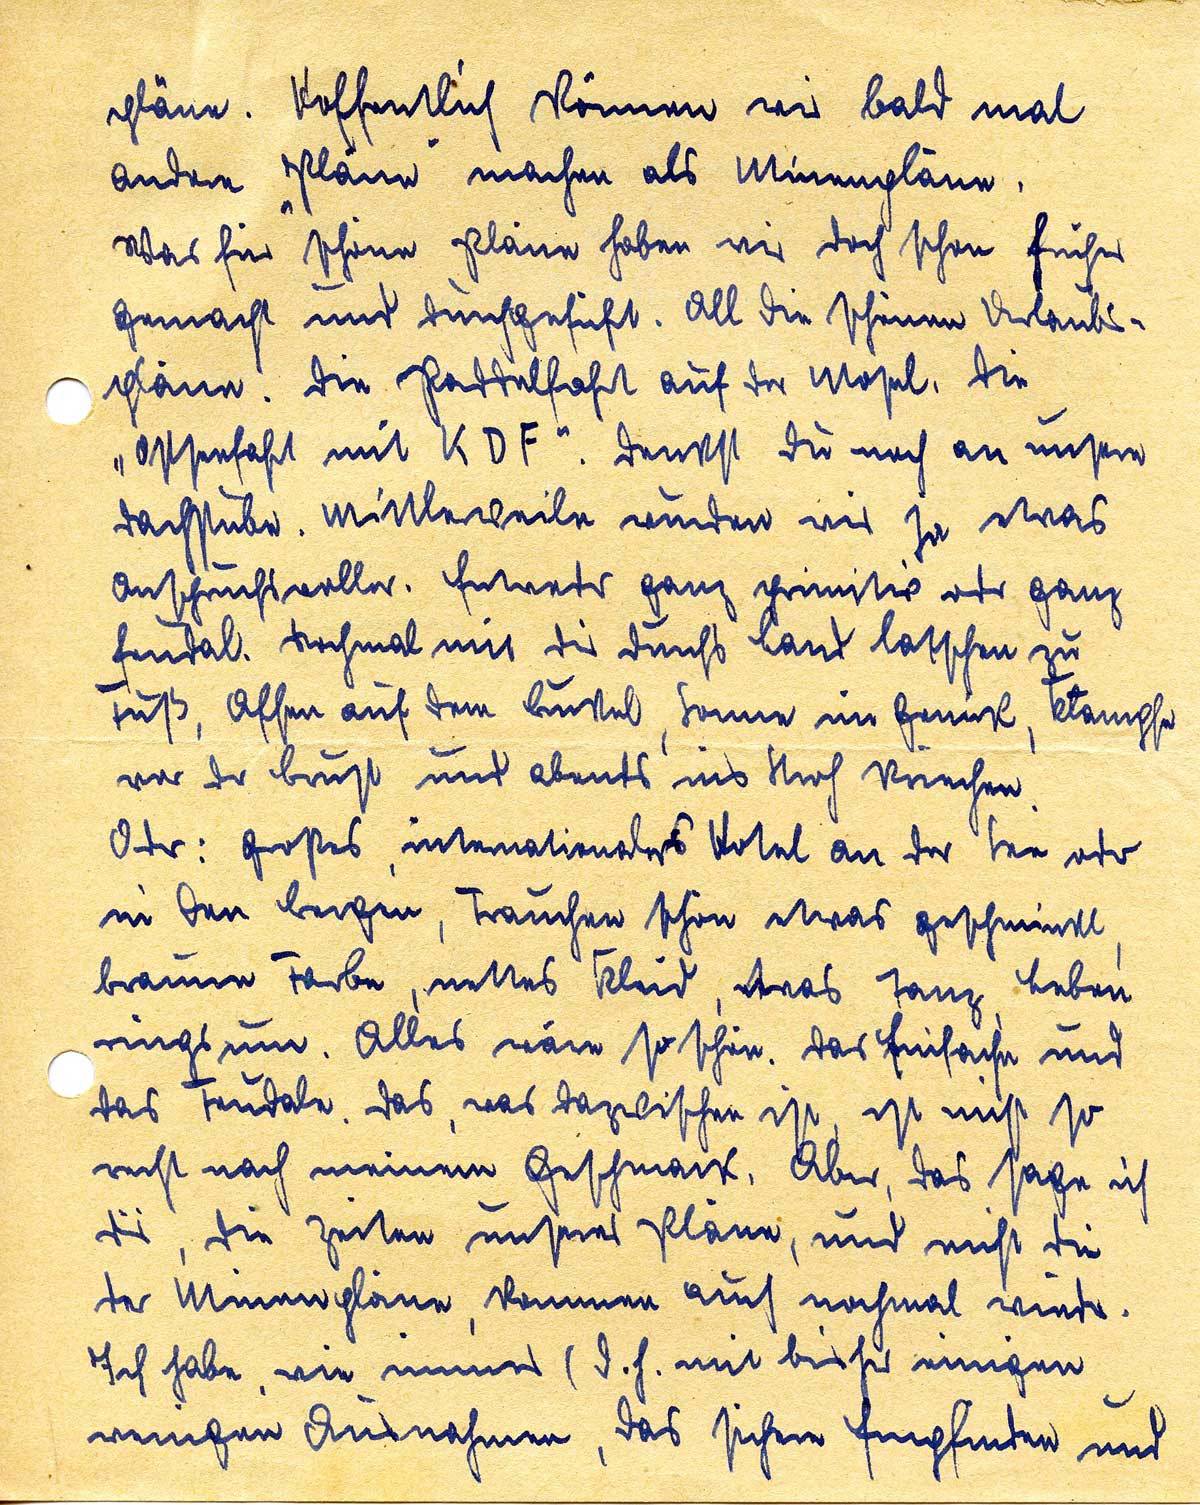 pläne. Hoffentlich können wir bald mal
andere "Pläne" machen als Minenpläne.
Was für schöne Pläne haben wir doch schon früher
gemacht und durchgeführt. All die schönen Urlaubs-
pläne. Die Paddelfahrt auf der Mosel. Die
„Ostseefahrt mit KDF". Denkst Du noch an unsere
Dachstube. Mittlerweile wurden wir ja etwas
anspruchsvoller. Entweder ganz primitiv oder ganz
feudal. Nochmal mit dir durchs Land latschen zu
Fuß, Affen auf dem Buckel, Sonne im Genick, Klampfe
vor der Brust und abends ins Stroh kriechen.
Oder: großes, internationales Hotel an der See oder
in den Bergen, Frauchen schön etwas geschminkt,
braune Farbe, nettes Kleid, etwas Tanz, Leben
ringsum. Alles wäre so schön. Das Einfache und
das Feudale. Das, was dazwischen ist, ist nicht so
recht nach meinem Geschmack. Aber, das sage ich
dir, die Zeiten unserer Pläne, und nicht die
der Minenpläne, kommen auch nochmal wieder.
Ich habe, wie immer (d.h. mit bisher einigen
wenigen Ausnahmen, das sichere Empfinden und